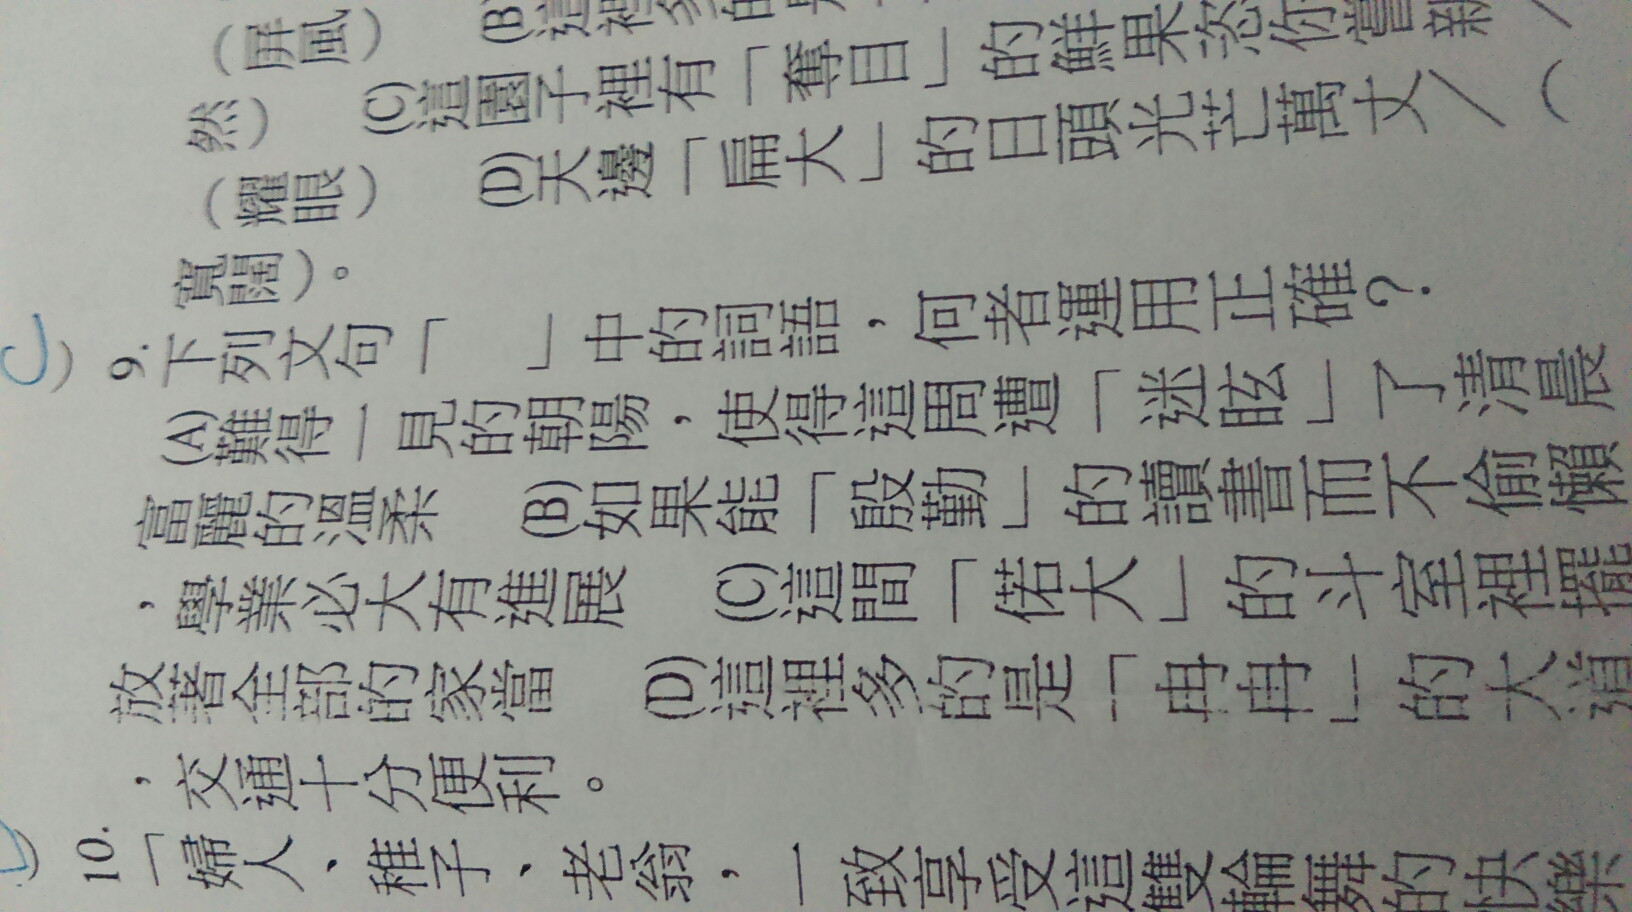 （屏風） (B)這裡多的是
然） (C)這園子裡有「奪目」的鮮果恣你嘗新／
（耀眼） (D)天邊「扁大」的日頭光芒萬丈／（
寬闊）。
C） 9.下列文句「　」中的詞語，何者運用正確？
(A)難得一見的朝陽，使得這周遭「迷眩」了清晨
富麗的溫柔 (B)如果能「殷勤」的讀書而不偷懶
，學業必大有進展 (C)這間「偌大」的斗室裡擺
放著全部的家當 (D)這裡多的是「冉冉」的大道
，交通十分便利。
） 10.「婦人、稚子、老翁，一致享受這雙輪舞的快樂